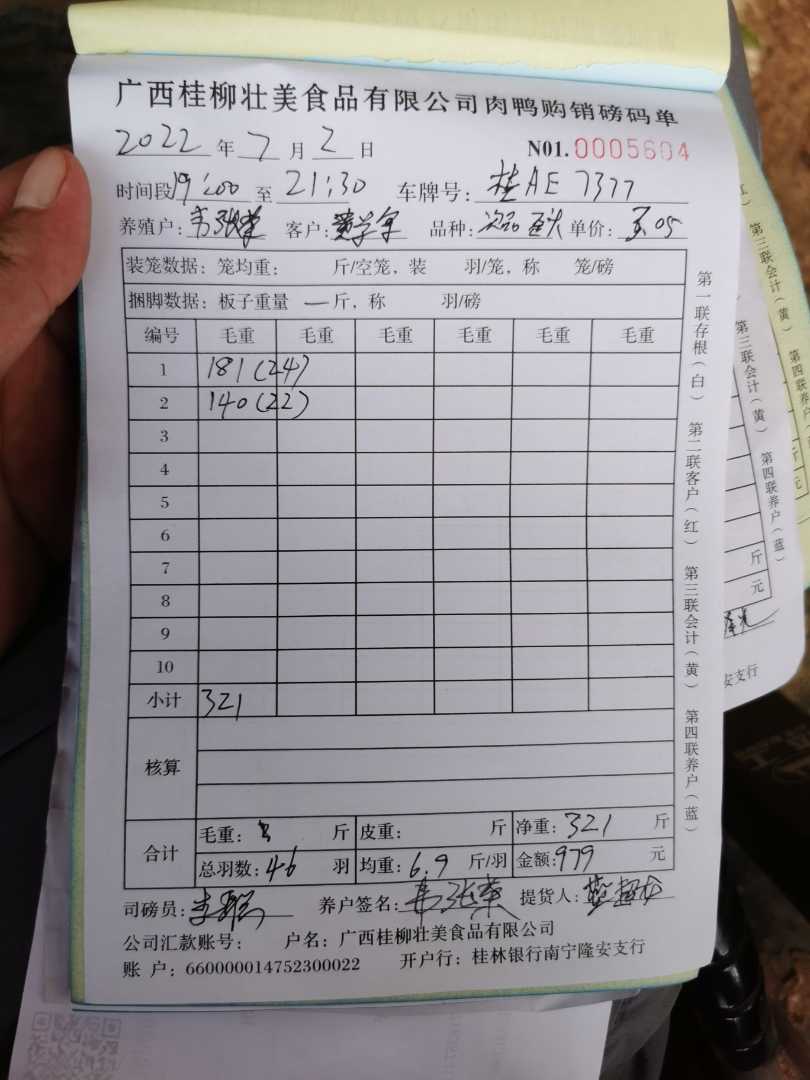 广西桂柳壮美食品有限公司肉鸭购销磅码单
2022年7月2日 N01.0005604
时间段19:00至21:30 车牌号:桂AE7377
养殖户:韦张荣 客户:黄学军 品种: 单价:3.05
装笼数据:笼均重: 斤/空笼,装 羽/笼,称 笼/磅
捆脚数据:板子重量 一斤,称 羽/磅
编号 毛重 毛重 毛重 毛重 毛重 毛重
1 181(24)
2 140(22)
3
4
5
6
7
8
9
10
小计 321
核算
合计 毛重: 斤 皮重: 斤 净重:321 斤
总羽数:46 羽 均重:6.9 斤/羽 金额:979 元
司磅员: 养户签名:韦张荣 提货人:
公司汇款账号: 户名:广西桂柳壮美食品有限公司
账 户:660000014752300022 开户行:桂林银行南宁隆安支行
第一联存根(白) 第二联客户(红) 第三联会计(黄) 第四联养户(蓝)
第三联会计(黄) 第四联养户(蓝)
斤
元
安支行
第三联会计(黄) 第四联养户
斤
元